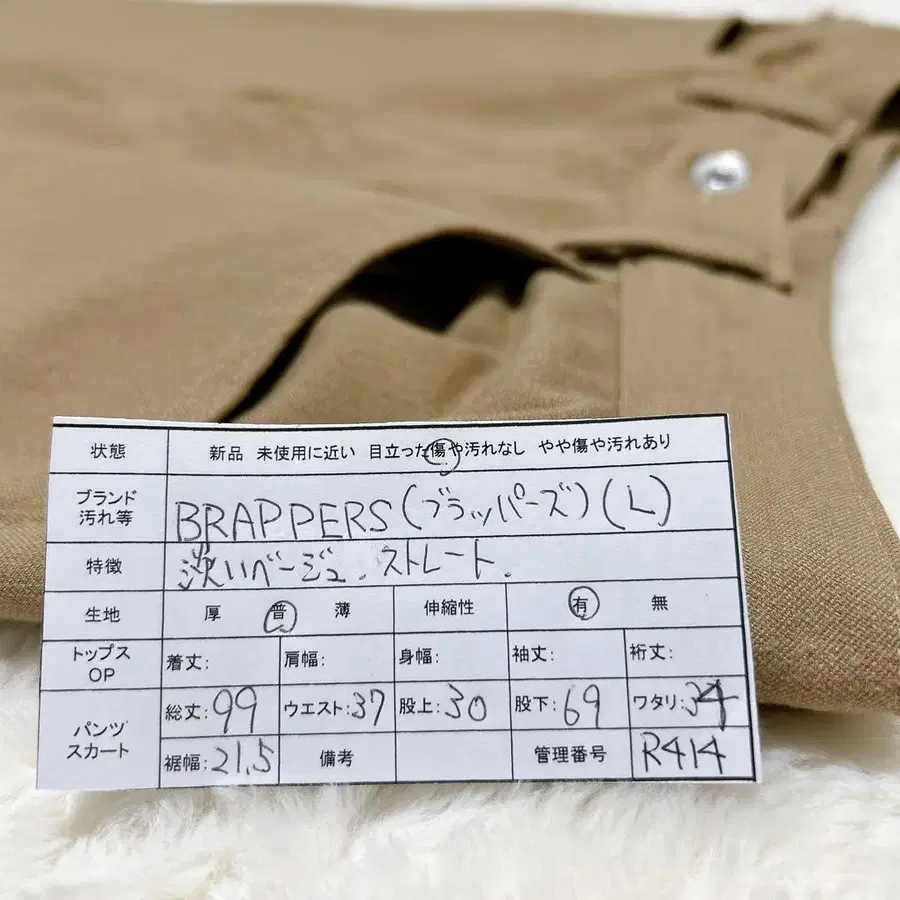 状態 新品 未使用に近い 目立った傷や汚れなし やや傷や汚れあり
ブランド
汚れ等
BRAPPERS(ブラッパーズ)(L)
特徴 淡いベージュ.ストレート.
生地 厚 普 薄 伸縮性 有 無
トップス
OP
着丈: 肩幅: 身幅: 袖丈: 裄丈:
パンツ
スカート
総丈:99 ウエスト:37 股上:30 股下:69 ワタリ:34
裾幅:21.5 備考 管理番号 R414